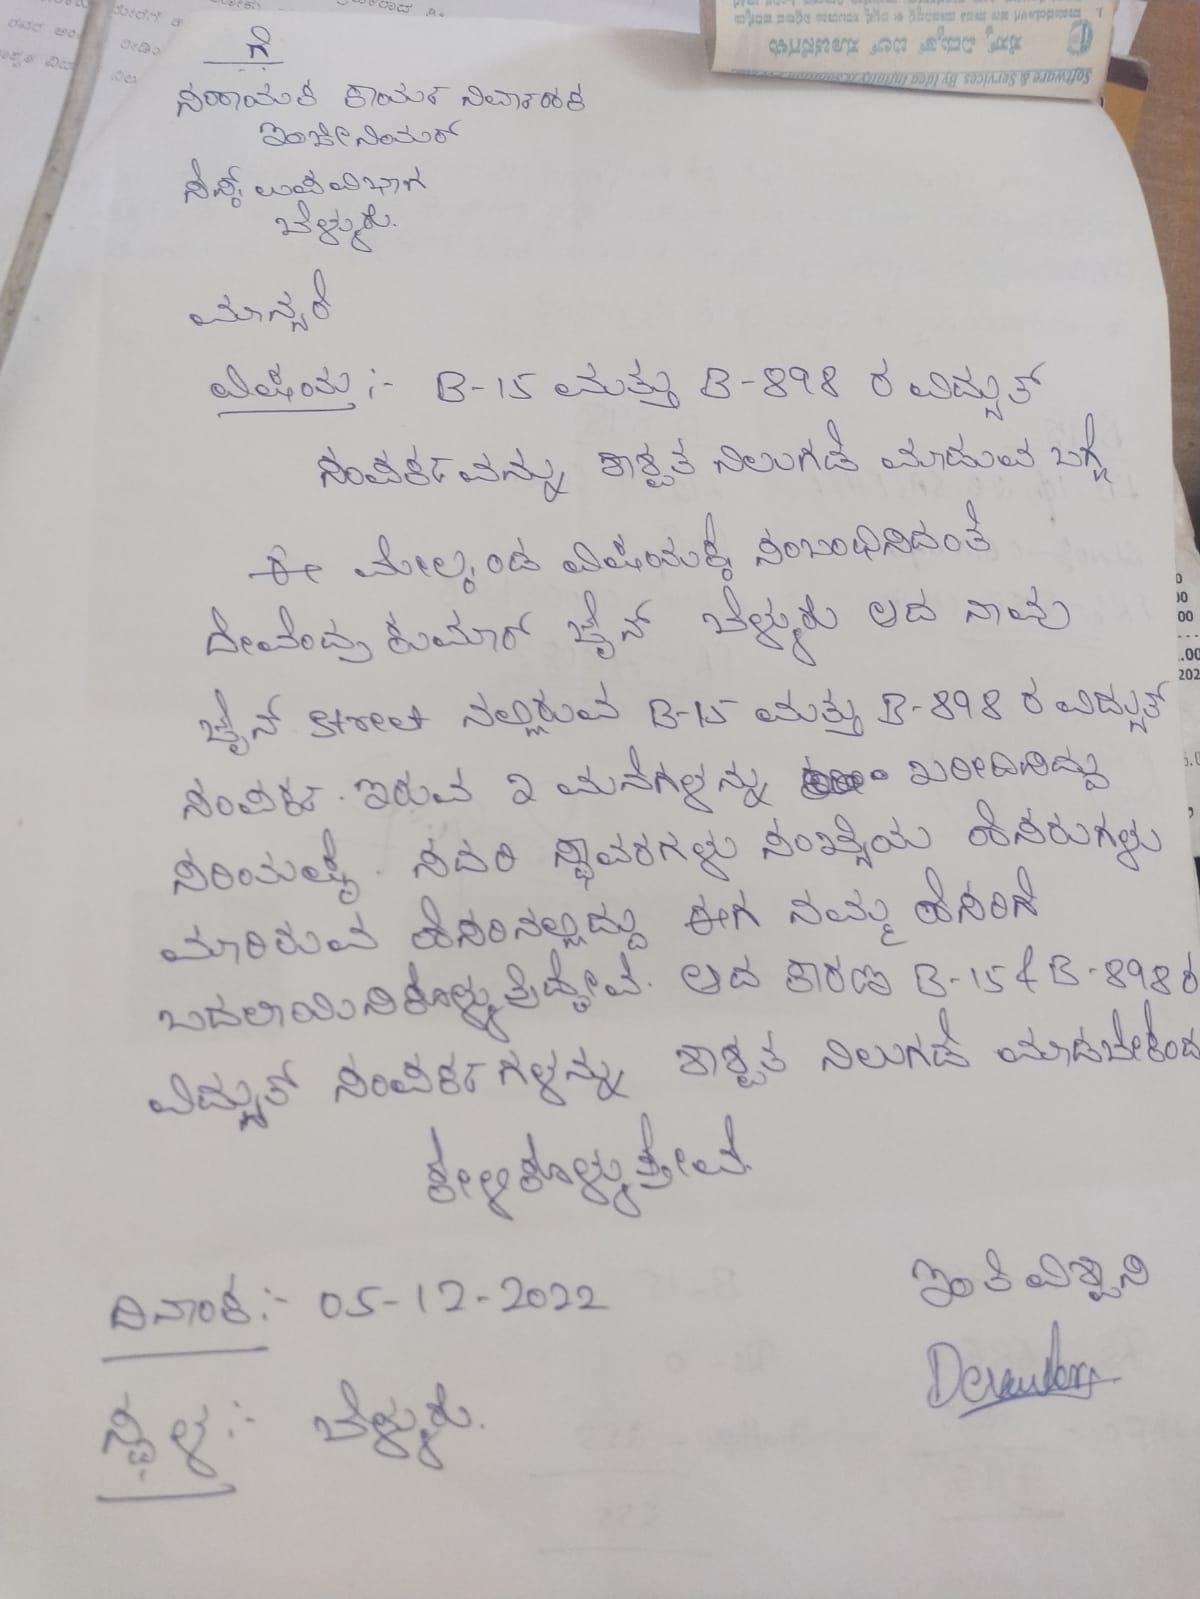 ಗೆ
ಸಹಾಯಕ ಕಾರ್ಯ ನಿರ್ವಾಹಕ
ಇಂಜೀನಿಯರ್
ಸೆಸ್ಕ್ ಉಪವಿಭಾಗ
ಬೆಳ್ಳೂರು.
ಮಾನ್ಯರೆ
ವಿಷಯ :- B-15 ಮತ್ತು B-898 ರ ವಿದ್ಯುತ್
ಸಂಪರ್ಕವನ್ನು ಶಾಶ್ವತ ನಿಲುಗಡೆ ಮಾಡುವ ಬಗ್ಗೆ
ಈ ಮೇಲ್ಕಂಡ ವಿಷಯಕ್ಕೆ ಸಂಬಂಧಿಸಿದಂತೆ
ದೇವೇಂದ್ರ ಕುಮಾರ್ ಜೈನ್ ಬೆಳ್ಳೂರು ಆದ ನಾವು
ಜೈನ್ street ನಲ್ಲಿರುವ B-15 ಮತ್ತು B-898 ರ ವಿದ್ಯುತ್
ಸಂಪರ್ಕ ಇರುವ 2 ಮನೆಗಳನ್ನು ಖರೀದಿಸಿದ್ದು
ಸರಿಯಷ್ಟೆ. ಸದರಿ ಸ್ಥಾವರಗಳು ಸಂಖ್ಯೆಯ ಹೆಸರುಗಳು
ಮಾರಿರುವ ಹೆಸರಿನಲ್ಲಿದ್ದು ಈಗ ನಮ್ಮ ಹೆಸರಿಗೆ
ಬದಲಾಯಿಸಿಕೊಳ್ಳುತ್ತಿದ್ದೇವೆ. ಆದ ಕಾರಣ B-15 & B-898 ರ
ವಿದ್ಯುತ್ ಸಂಪರ್ಕಗಳನ್ನು ಶಾಶ್ವತ ನಿಲುಗಡೆ ಮಾಡಬೇಕೆಂದು
ಕೇಳಿಕೊಳ್ಳುತ್ತೇವೆ.
ಇಂತಿ ವಿಶ್ವಾಸಿ
ದಿನಾಂಕ :- 05-12-2022
ಸ್ಥಳ :- ಬೆಳ್ಳೂರು.